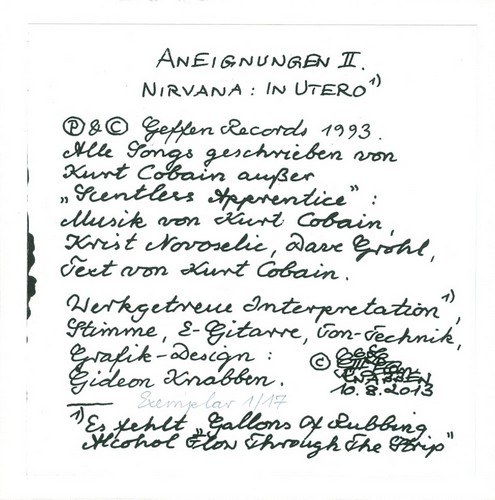 ANEIGNUNGEN II.
NIRVANA: IN UTERO ¹⁾
Ⓟ & © Geffen Records 1993.
Alle Songs geschrieben von
Kurt Cobain außer
„Scentless Apprentice“ :
Musik von Kurt Cobain,
Krist Novoselic, Dave Grohl,
Text von Kurt Cobain.
Werkgetreue Interpretation ¹⁾,
Stimme, E-Gitarre, Ton-Technik,
Grafik-Design :
Gideon Knabben.
©
KNABBEN
10.8.2013
Exemplar 1/17
¹⁾ Es fehlt „Gallons Of Rubbing
Alcohol Flow Through The Strip“